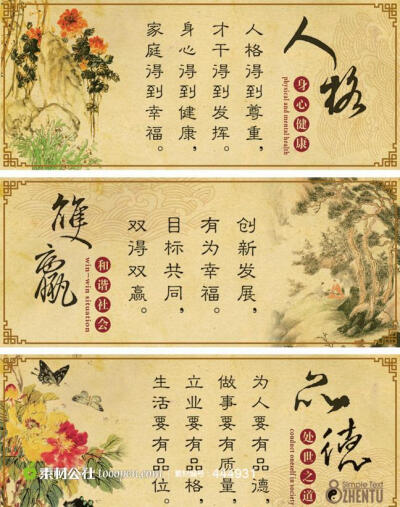 人格
身心健康
physical and mental health
人格得到尊重，
才干得到发挥。
身心得到健康，
家庭得到幸福。
雙赢
和谐社会
win-win situation
创新发展，
有为幸福。
目标共同，
双得双赢。
品德
处世之道
conduct oneself in society
为人要有品德，
做事要有质量，
立业要有品格。
生活要有品位。
素材公社 1000cc.com 素材编号：444931
Simple Text
ZHENTU